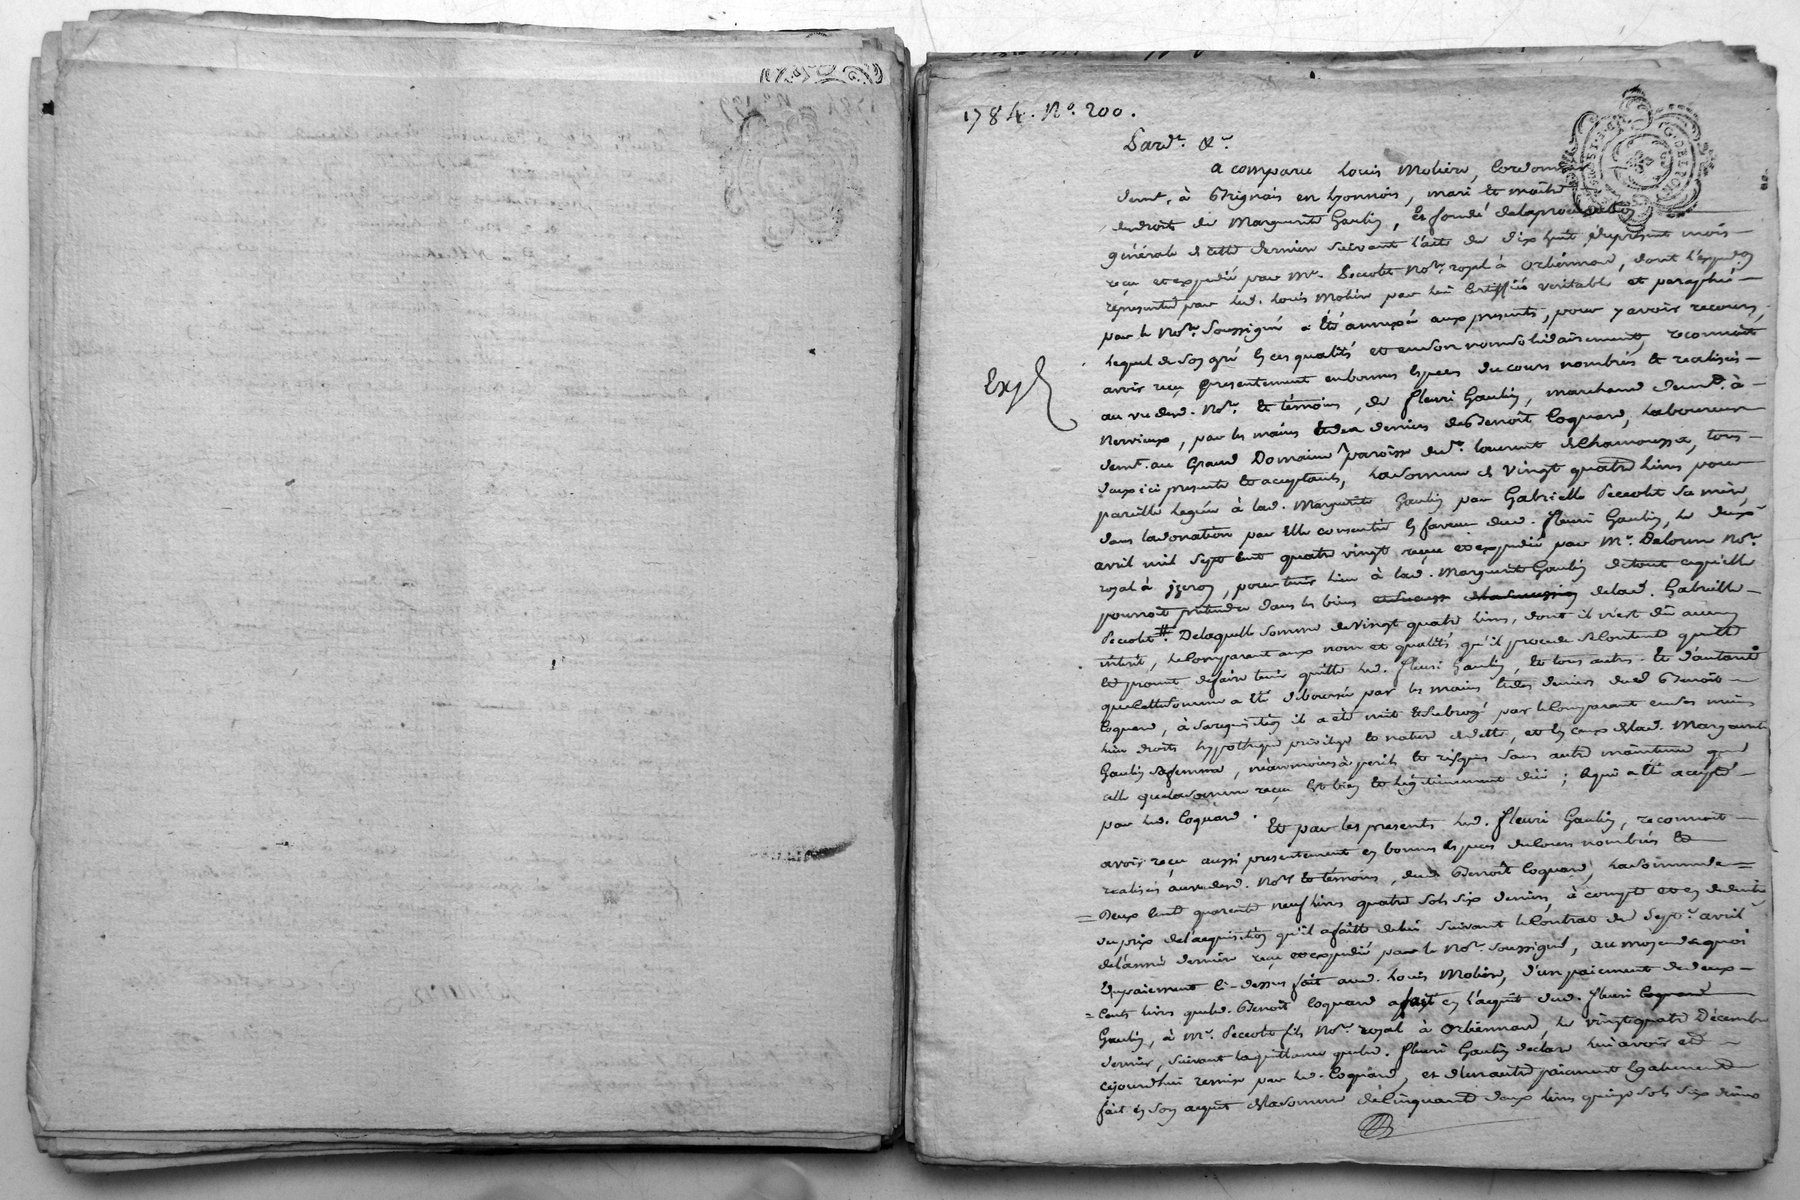 1784. N.º 200.
Pard.t &.a
A comparu Louis Molière, Cordonnier
demt. à Brignais en Lyonnois, mari et maître
des droits de Marguerite Gaulin, et fondé de la procuration
générale de cette derniere suivant l'acte du dix huit du present mois
reçu et expedié par Me. Peccolet Nore. royal à Orliennard, dont l'expedon
représentée par led. Louis Molière par lui certiffiée veritable et paraphée
par le Nore. Soussigné a été annexée aux presentes, pour y avoir recours,
Lequel de son gré ès ces qualités et en son nom solidairement, reconnoit
avoir reçu presentement en bonnes especes du cours nombrées et realisées
au vu dud. Nore. et témoins, de fleuri Gaulin, marchand demt. à
Nervieux, par les mains et des deniers de Benoît Coquard, Laboureur
demt. au Grand Domaine paroisse de St. Laurent de Chamousset, tous
deux ici presents et acceptants, la somme de vingt quatre livres pour
pareille leguée à lad. Marguerite Gaulin par Gabrielle Peccolet sa mère,
dans la donation par elle consentie en faveur dud. fleuri Gaulin, le deux
avril mil sept cent quatre vingt reçue et expediée par Me. Delorme Nore.
royal à Izeron, pour tenir lieu à lad. Marguerite Gaulin de tout ce qu'elle
pourroit prétendre dans les biens de lad. Gabrielle
Peccolet #. De laquelle somme de vingt quatre livres, dont il n'est dû aucun
intérêt, le Comparant aux nom et qualités qu'il procede se contente quitte
et promet de faire tenir quitte led. fleuri Gaulin, et tous autres. Et d'autant
que cette somme a été déboursée par les mains et des deniers dud. Benoît
Coquard, à sa requisition il a été mis et subrogé par le Comparant en ses mêmes
lieu droits hypotheque privilege et nature de dette, et en ceux de lad. Marguerite
Gaulin sa femme, néanmoins à perils et risques sans autre maintenue que
celle que la somme reçue est bien et légitimement dûe ; ce qui a été accepté
par led. Coquard. Et par les presentes led. fleuri Gaulin, reconnoit
avoir reçu aussi presentement en bonnes especes de cours nombrées et
realisées au vu dud. Nore. et témoins, dud. Benoît Coquard, la somme de
= Deux cent quarente neuf livres quatre sols six deniers, à compte et en deduction
du prix de l'acquisition qu'il a faite de lui suivant le Contrat du sept avril
de l'année derniere reçu et expedié par le Nore. soussigné, au moyen de quoi
du paiement ci-dessus fait aud. Louis Molière, d'un paiement de deux
= cents livres que led. Benoît Coquard a fait en l'acquit dud. fleuri Coquard
Gaulin, à Me. Peccolet fils Nore. royal à Orliennard, le vingt quatre Décembre
dernier, suivant la quittance que led. fleuri Gaulin declare lui avoir été
cejourd'hui remise par led. Coquard, et d'un autre paiement également
fait en son acquit de la somme de Cinquante deux livres quinze sols six deniers
Exp